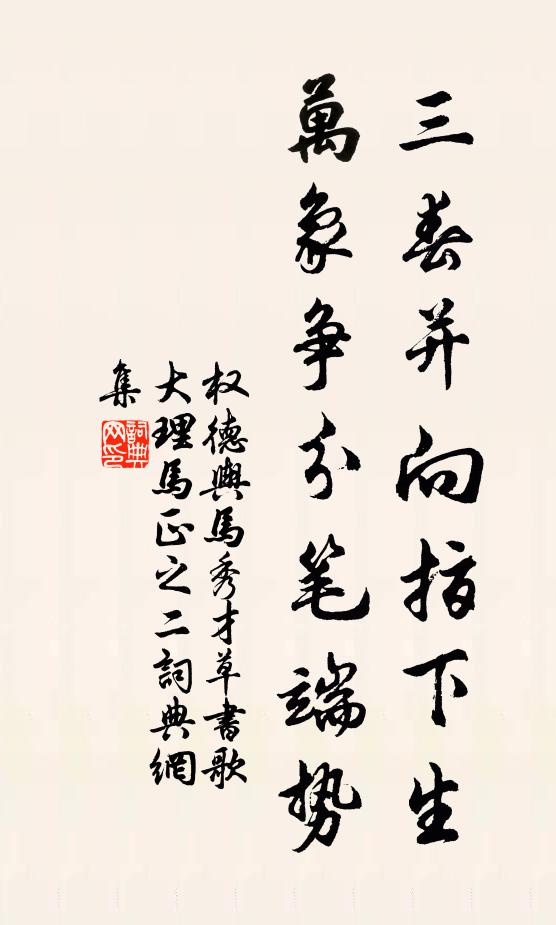 三春并向指下生
萬象争分笔端勢
权德輿馬秀才草書歌
大理馬正之二詞典網
集
詞典网印